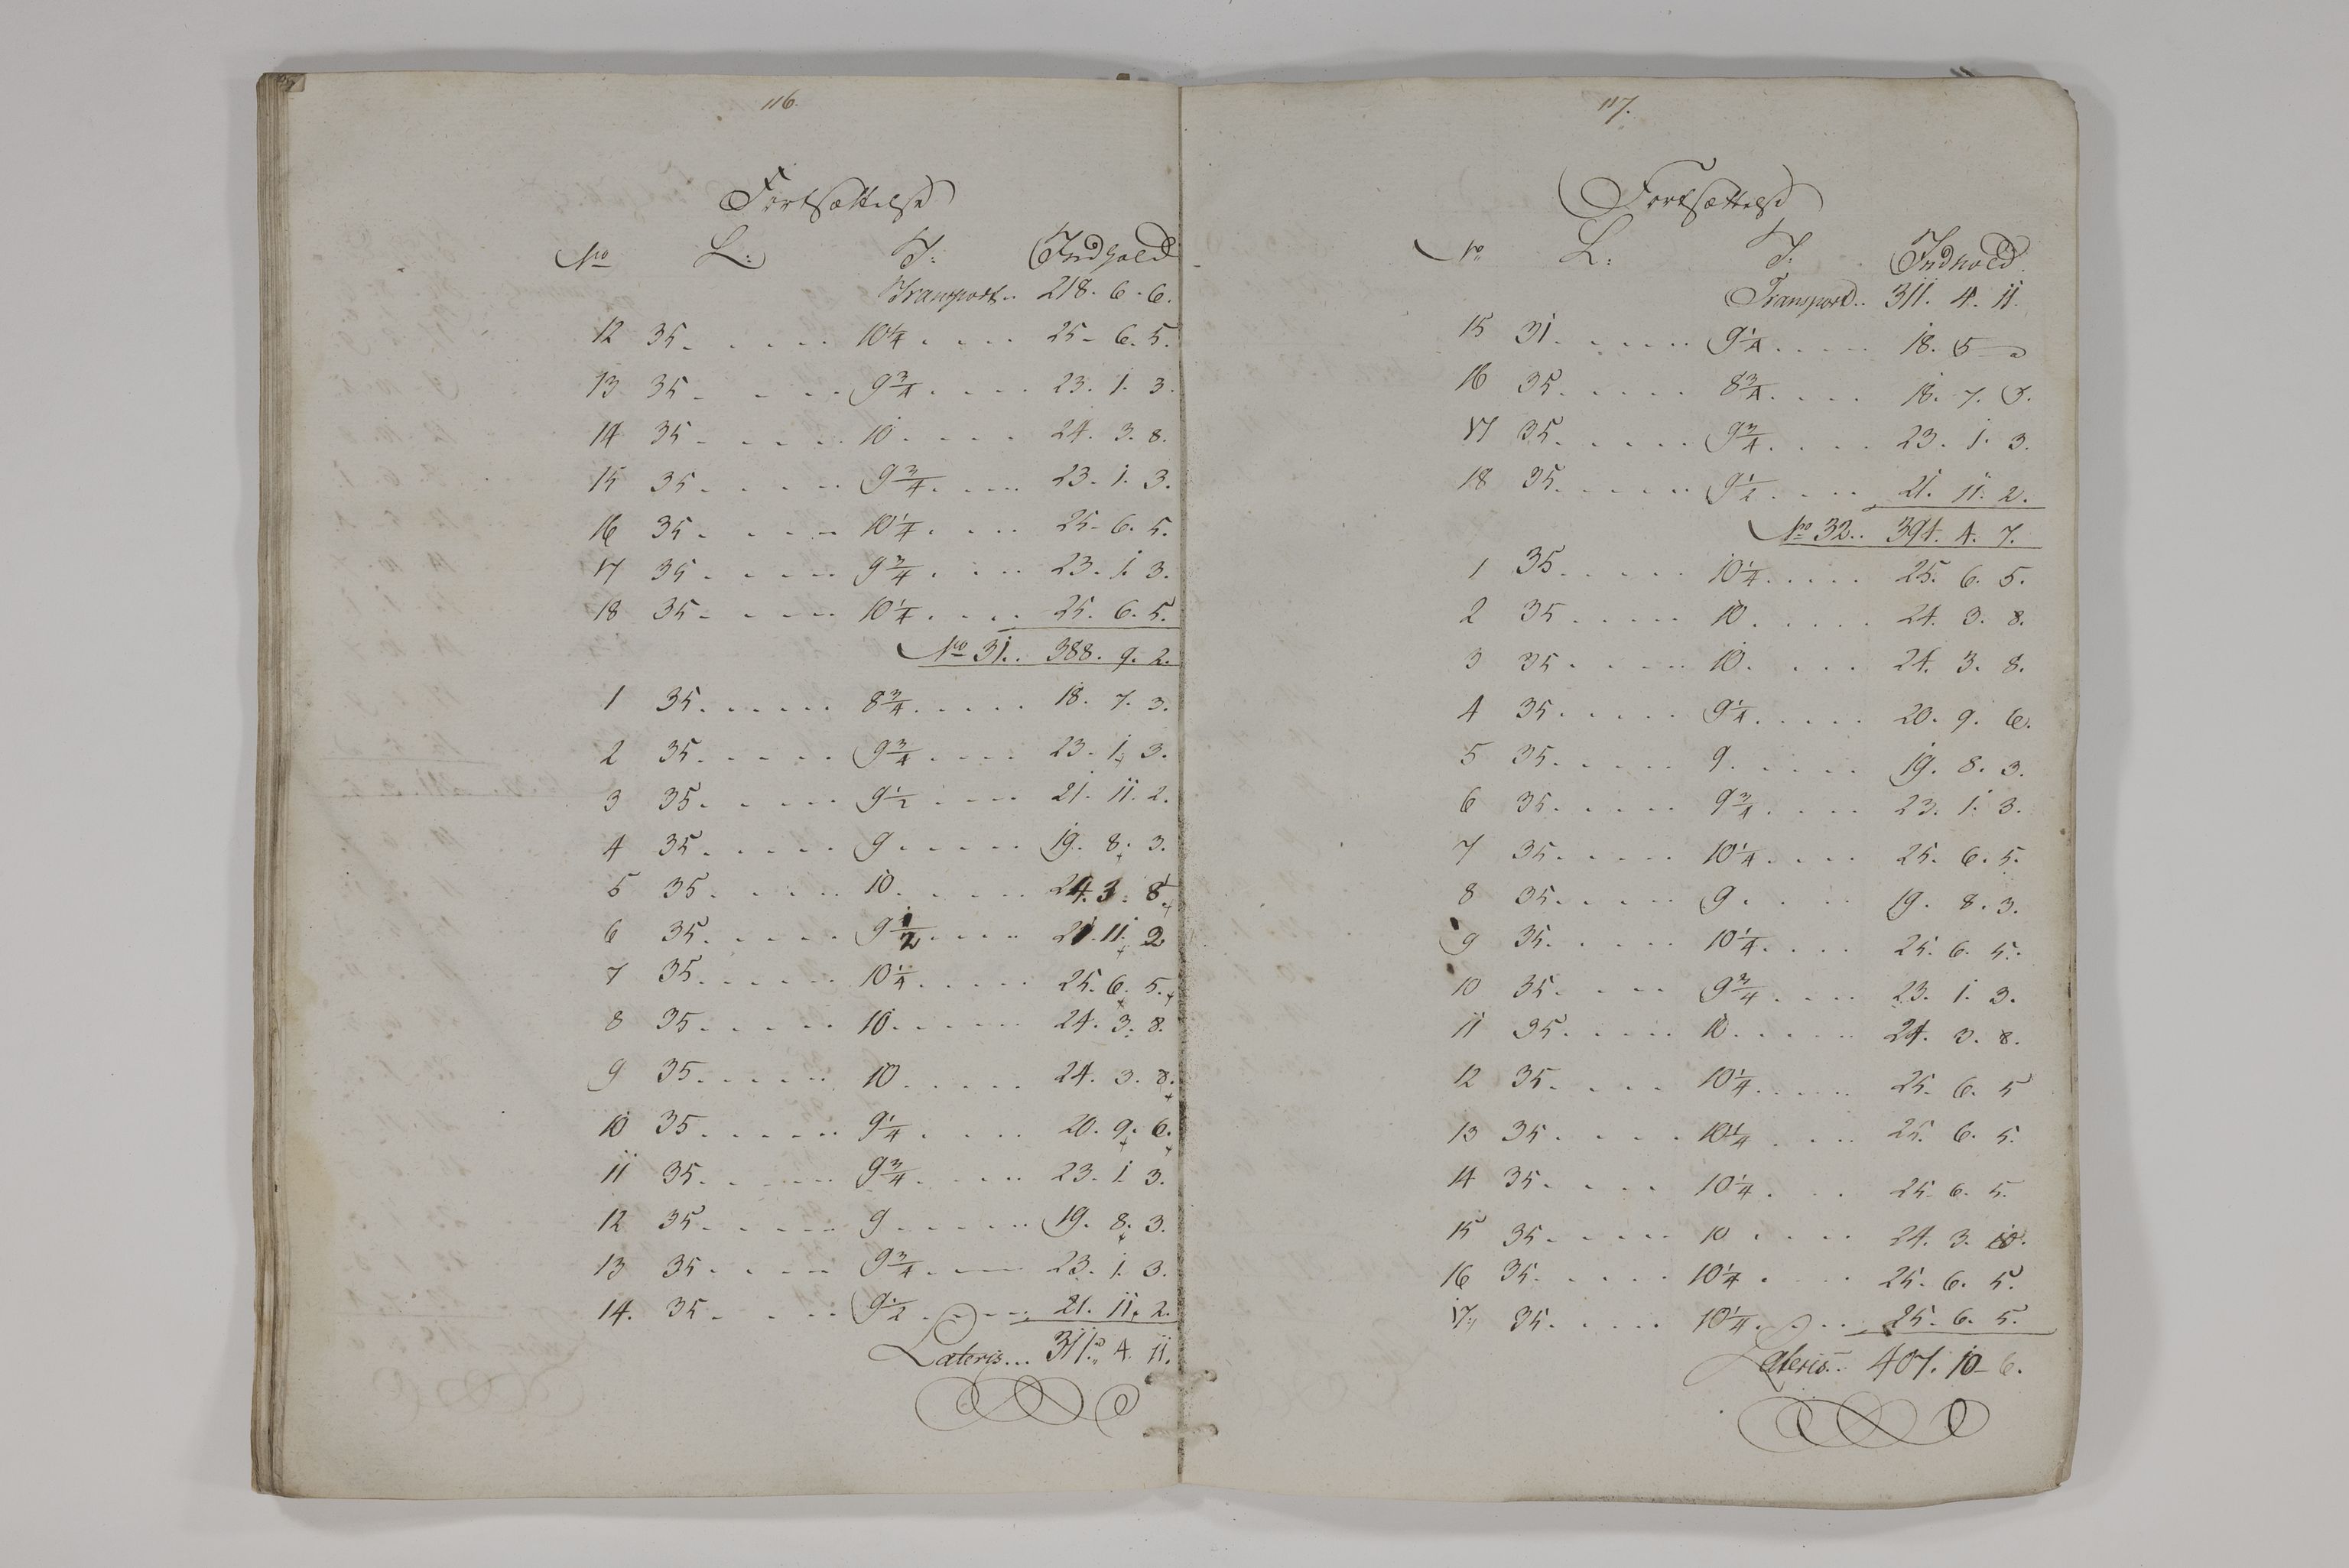 116.
Fortsættelse
No L: T: Indhold
Transport.. 218. 6. 6.
12 35. . . . . 10¼ . . . . 25. 6. 5.
13 35. . . . . 9¾ . . . . 23. 1. 3.
14 35. . . . . 10 . . . . 24. 3. 8.
15 35. . . . . 9¾ . . . . 23. 1. 3.
16 35. . . . . 10¼ . . . . 25. 6. 5.
17 35. . . . . 9¾ . . . . 23. 1. 3.
18 35. . . . . 10¼ . . . . 25. 6. 5.
No 31.. 388. 9. 2.
1 35. . . . . 8¾ . . . . 18. 7. 3.
2 35. . . . . 9¾ . . . . 23. 1. 3.
3 35. . . . . 9½ . . . . 21. 11. 2.
4 35. . . . . 9 . . . . 19. 8. 3.
5 35. . . . . 10 . . . . 24. 3. 8.
6 35. . . . . 9½ . . . . 21. 11. 2
7 35. . . . . 10¼ . . . . 25. 6. 5.
8 35. . . . . 10 . . . . 24. 3. 8.
9 35. . . . . 10 . . . . 24. 3. 8.
10 35. . . . . 9¼ . . . . 20. 9. 6.
11 35. . . . . 9¾ . . . . 23. 1. 3.
12 35. . . . . 9 . . . . 19. 8. 3.
13 35. . . . . 9¾ . . . . 23. 1. 3.
14. 35. . . . . 9½ . . . . 21. 11. 2.
Lateris... 311. 4. 11.
117.
Fortsættelse
No L: T: Indhold
Transport.. 311. 4. 11.
15 31. . . . . 9¼ . . . . 18. 5 —
16 35. . . . . 8¾ . . . . 18. 7. 3.
17 35. . . . . 9¾ . . . . 23. 1. 3.
18 35. . . . . 9½ . . . . 21. 11. 2.
No 32.. 394. 4. 7.
1 35. . . . . 10¼ . . . . 25. 6. 5.
2 35 . . . . . 10 . . . . 24. 3. 8.
3 35 . . . . . 10 . . . . 24. 3. 8.
4 35 . . . . . 9¼ . . . . 20. 9. 6.
5 35. . . . . 9 . . . . 19. 8. 3.
6 35. . . . . 9¾ . . . . 23. 1. 3.
7 35. . . . . 10¼ . . . . 25. 6. 5.
8 35. . . . . 9 . . . . 19. 8. 3.
9 35. . . . . 10¼ . . . . 25. 6. 5.
10 35. . . . . 9¾ . . . . 23. 1. 3.
11 35. . . . . 10 . . . . 24. 3. 8.
12 35. . . . . 10¼ . . . . 25. 6. 5
13 35. . . . . 10¼ . . . . 25. 6. 5.
14 35. . . . . 10¼ . . . . 25. 6. 5.
15 35. . . . . 10 . . . . 24. 3. 8.
16 35. . . . . 10¼ . . . . 25. 6. 5.
17. 35. . . . . 10¼ . . . . 25. 6. 5.
Lateris.. 407. 10 - 6.